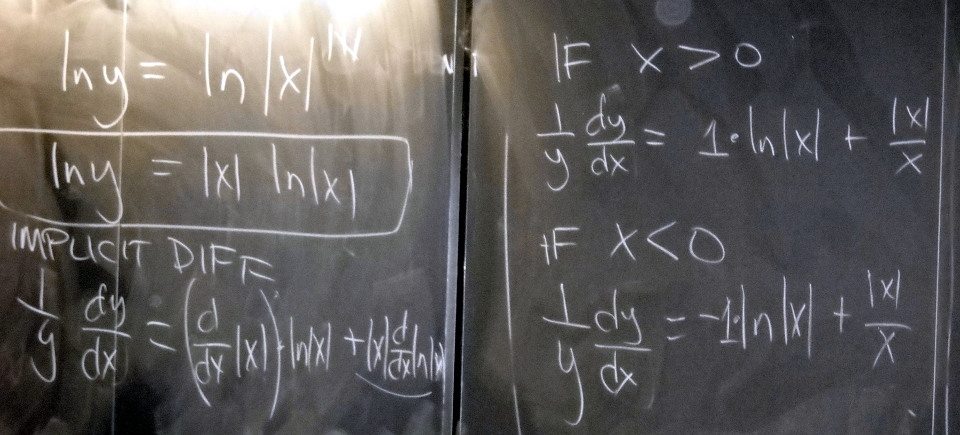 ln y = ln |x|^|x|
ln y = |x| ln|x|
IMPLICIT DIFF
1/y dy/dx = (d/dx |x|) · ln|x| + |x| d/dx ln|x|
IF x > 0
1/y dy/dx = 1 · ln|x| + |x|/x
IF x < 0
1/y dy/dx = -1 · ln|x| + |x|/x